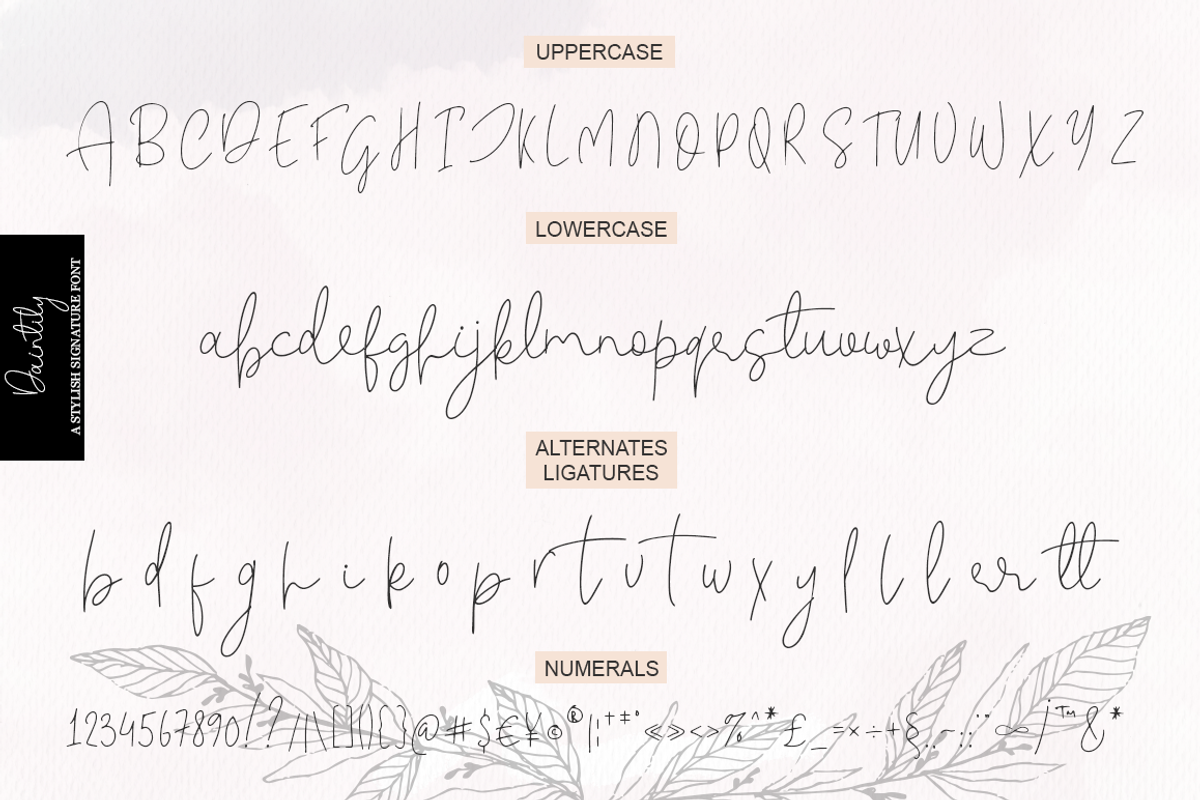 UPPERCASE
ABCDEFGHIJKLMNOPQRSTUVWXYZ
LOWERCASE
abcdefghijklmnopqrstuvwxyz
Daintily
A STYLISH SIGNATURE FONT
ALTERNATES
LIGATURES
b d f g h i k o p r t v t w x y l l l er r tt
NUMERALS
1234567890!?/|\[]()Ⓡ{}@#$€¥©®|¦†‡°«»<>%^*£_=×÷+§.,~:;¨∞/™&*